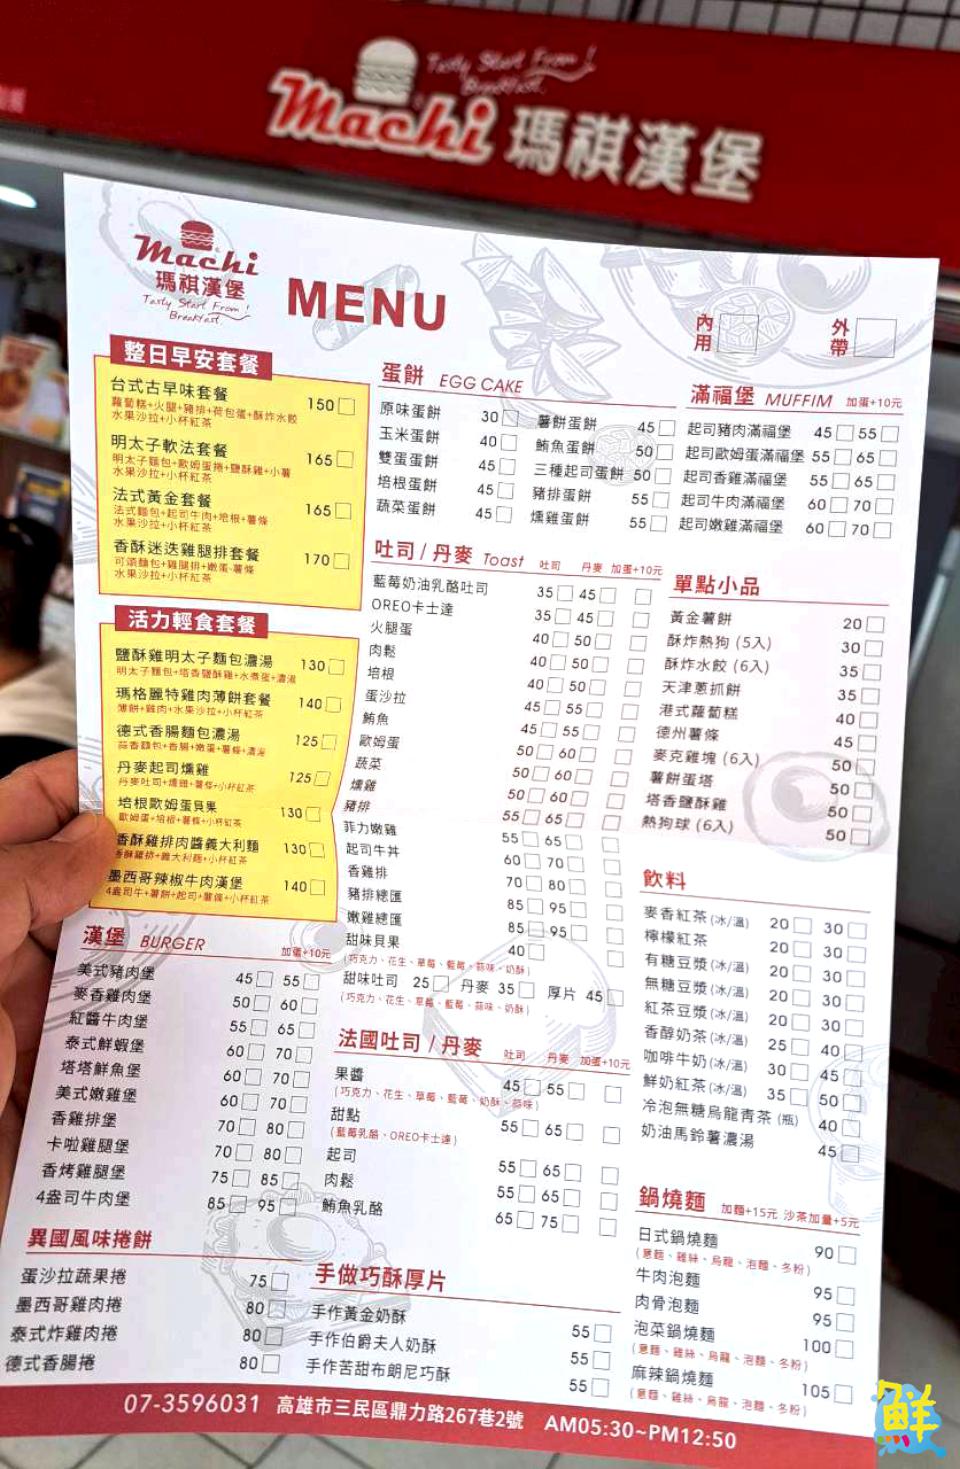 Tasty Start From!
Breakfast.
Machi 瑪祺漢堡
Machi
瑪祺漢堡
Tasty Start From!
Breakfast.
MENU
內用
外帶
整日早安套餐
台式古早味套餐 150
蘿蔔糕+火腿+豬排+荷包蛋+酥炸水餃
水果沙拉+小杯紅茶
明太子軟法套餐 165
明太子麵包+歐姆蛋捲+鹽酥雞+小薯
水果沙拉+小杯紅茶
法式黃金套餐 165
法式麵包+起司牛肉+培根+薯條
水果沙拉+小杯紅茶
香酥迷迭雞腿排套餐 170
可頌麵包+雞腿排+嫩蛋+薯條
水果沙拉+小杯紅茶
活力輕食套餐
鹽酥雞明太子麵包濃湯 130
明太子麵包+塔香鹽酥雞+水煮蛋+濃湯
瑪格麗特雞肉薄餅套餐 140
薄餅+雞肉+水果沙拉+小杯紅茶
德式香腸麵包濃湯 125
蒜香麵包+香腸+嫩蛋+薯條+濃湯
丹麥起司燻雞 125
丹麥吐司+燻雞+薯條+小杯紅茶
培根歐姆蛋貝果 130
歐姆蛋+培根+薯條+小杯紅茶
香酥雞排肉醬義大利麵 130
香酥雞排+義大利麵+小杯紅茶
墨西哥辣椒牛肉漢堡 140
4盎司牛+薯餅+起司+薯條+小杯紅茶
漢堡 BURGER 加蛋+10元
美式豬肉堡 45 55
麥香雞肉堡 50 60
紅醬牛肉堡 55 65
泰式鮮蝦堡 60 70
塔塔鮮魚堡 60 70
美式嫩雞堡 60 70
香雞排堡 70 80
卡啦雞腿堡 70 80
香烤雞腿堡 75 85
4盎司牛肉堡 85 95
異國風味捲餅
蛋沙拉蔬果捲 75
墨西哥雞肉捲 80
泰式炸雞肉捲 80
德式香腸捲 80
蛋餅 EGG CAKE
原味蛋餅 30
玉米蛋餅 40
雙蛋蛋餅 45
培根蛋餅 45
蔬菜蛋餅 45
薯餅蛋餅 45
鮪魚蛋餅 50
三種起司蛋餅 50
豬排蛋餅 55
燻雞蛋餅 55
吐司 / 丹麥 Toast 吐司 丹麥 加蛋+10元
藍莓奶油乳酪吐司 35 45
OREO卡士達 35 45
火腿蛋 40 50
肉鬆 40 50
培根 40 50
蛋沙拉 45 55
鮪魚 45 55
歐姆蛋 50 60
蔬菜 50 60
燻雞 50 60
豬排 55 65
菲力嫩雞 55 65
起司牛丼 60 70
香雞排 70 80
豬排總匯 85 95
嫩雞總匯 85 95
甜味貝果 40
(巧克力、花生、草莓、藍莓、蒜味、奶酥)
甜味吐司 25 丹麥 35 厚片 45
(巧克力、花生、草莓、藍莓、蒜味、奶酥)
法國吐司 / 丹麥 吐司 丹麥 加蛋+10元
果醬 45 55
(巧克力、花生、草莓、藍莓、奶酥、蒜味)
甜點 55 65
(藍莓乳酪、OREO卡士達)
起司 55 65
肉鬆 55 65
鮪魚乳酪 65 75
手做巧酥厚片
手作黃金奶酥 55
手作伯爵夫人奶酥 55
手作苦甜布朗尼巧酥 55
滿福堡 MUFFIM 加蛋+10元
起司豬肉滿福堡 45 55
起司歐姆蛋滿福堡 55 65
起司香雞滿福堡 55 65
起司牛肉滿福堡 60 70
起司嫩雞滿福堡 60 70
單點小品
黃金薯餅 20
酥炸熱狗 (5入) 30
酥炸水餃 (6入) 35
天津蔥抓餅 35
港式蘿蔔糕 40
德州薯條 45
麥克雞塊 (6入) 50
薯餅蛋塔 50
塔香鹽酥雞 50
熱狗球 (6入) 50
飲料
麥香紅茶 (冰/溫) 20 30
檸檬紅茶 20 30
有糖豆漿 (冰/溫) 20 30
無糖豆漿 (冰/溫) 20 30
紅茶豆漿 (冰/溫) 20 30
香醇奶茶 (冰/溫) 25 40
咖啡牛奶 (冰/溫) 30 45
鮮奶紅茶 (冰/溫) 35 50
冷泡無糖烏龍青茶 (瓶) 40
奶油馬鈴薯濃湯 45
鍋燒麵 加麵+15元 沙茶加量+5元
日式鍋燒麵 90
(意麵、雞絲、烏龍、泡麵、冬粉)
牛肉泡麵 95
肉骨泡麵 95
泡菜鍋燒麵 100
(意麵、雞絲、烏龍、泡麵、冬粉)
麻辣鍋燒麵 105
(意麵、雞絲、烏龍、泡麵、冬粉)
07-3596031 高雄市三民區鼎力路267巷2號 AM05:30~PM12:50
鮮